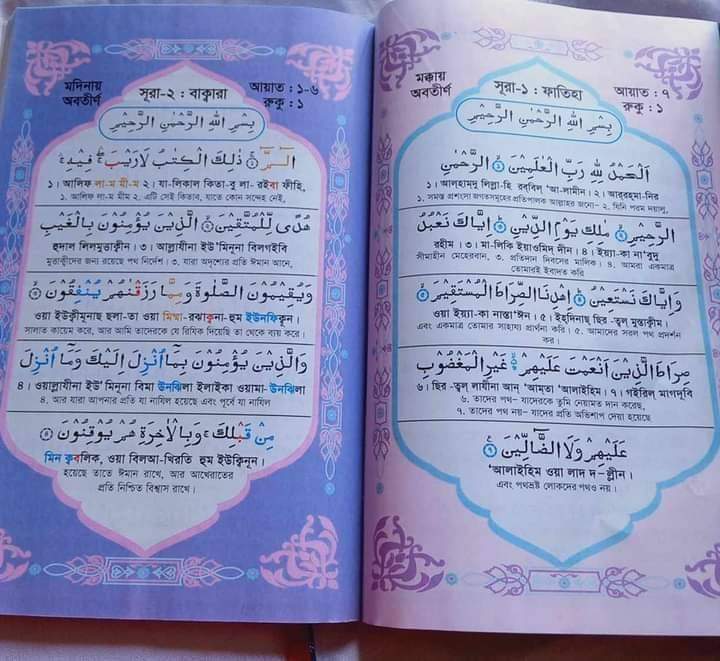 মক্কায়
অবতীর্ণ
সূরা-১ : ফাতিহা
আয়াত : ৭
রুকু : ১
بِسْمِ اللهِ الرَّحْمٰنِ الرَّحِيْمِ
اَلْحَمْدُ لِلّٰهِ رَبِّ الْعٰلَمِيْنَ ۝١ الرَّحْمٰنِ
১। আলহামদু লিল্লা-হি রব্বিল্ ‘আ-লামীন। ২। আর্‌রহ্‌মা-নির
১. সমস্ত প্রশংসা জগতসমূহের প্রতিপালক আল্লাহর জন্যে– ২. যিনি পরম দয়ালু,
الرَّحِيْمِ ۝٢ مٰلِكِ يَوْمِ الدِّيْنِ ۝٣ اِيَّاكَ نَعْبُدُ
রহীম। ৩। মা-লিকি ইয়াওমিদ্ দীন। ৪। ইয়্যা-কা না’বুদু
সীমাহীন মেহেরবান, ৩. প্রতিদান দিবসের মালিক। ৪. আমরা একমাত্র
তোমারই ইবাদত করি
وَاِيَّاكَ نَسْتَعِيْنُ ۝٤ اِهْدِنَا الصِّرَاطَ الْمُسْتَقِيْمَ ۝٥
ওয়া ইয়্যা-কা নাস্তা‘ঈন। ৫। ইহ্‌দিনাছ্ ছির-ত্বল্ মুস্তাক্বীম।
এবং একমাত্র তোমার সাহায্য প্রার্থনা করি। ৫. আমাদের সরল পথ প্রদর্শন
কর।
صِرَاطَ الَّذِيْنَ اَنْعَمْتَ عَلَيْهِمْ ۝٦ غَيْرِ الْمَغْضُوْبِ
৬। ছির-ত্বল লাযীনা আন্ ‘আম্‌তা ‘আলাইহিম। ৭। গইরিল্ মাগদূবি
৬. তাদের পথ– যাদেরকে তুমি নেয়ামত দান করেছ,
৭. তাদের পথ নয়– যাদের প্রতি অভিশাপ দেয়া হয়েছে
عَلَيْهِمْ وَلَا الضَّالِّيْنَ ۝٧
‘আলাইহিম ওয়া লাদ দ–ল্লীন।
এবং পথভ্রষ্ট লোকদের পথও নয়।
মদিনায়
অবতীর্ণ
সূরা-২ : বাক্বারা
আয়াত : ১-৬
রুকু : ১
بِسْمِ اللهِ الرَّحْمٰنِ الرَّحِيْمِ
الٓمّٓ ۝١ ذٰلِكَ الْكِتٰبُ لَا رَيْبَ ۛ فِيْهِ ۛ
১। আলিফ লা-ম মী-ম ২। যা-লিকাল কিতা-বু লা- রইবা ফীহি,
১. আলিফ লা-ম মীম ২. এটি সেই কিতাব, যাতে কোন সন্দেহ নেই,
هُدًى لِّلْمُتَّقِيْنَ ۝٢ الَّذِيْنَ يُؤْمِنُوْنَ بِالْغَيْبِ
হুদাল লিলমুত্তাক্বীন। ৩। আল্লাযীনা ইউ’মিনূনা বিলগইবি
মুত্তাকীদের জন্য রয়েছে পথ নির্দেশ। ৩. যারা অদৃশ্যের প্রতি ঈমান আনে,
وَيُقِيْمُوْنَ الصَّلٰوةَ وَمِمَّا رَزَقْنٰهُمْ يُنْفِقُوْنَ ۝٣
ওয়া ইউক্বীমূনাছ ছলা-তা ওয়া মিম্মা-রঝাক্বনা-হুম ইউনফিক্বূন।
সালাত কায়েম করে, আর আমি তাদেরকে যে রিযিক দিয়েছি তা থেকে ব্যয় করে।
وَالَّذِيْنَ يُؤْمِنُوْنَ بِمَآ اُنْزِلَ اِلَيْكَ وَمَآ اُنْزِلَ
৪। ওয়াল্লাযীনা ইউ’মিনূনা বিমা উনঝিলা ইলাইকা ওয়ামা-উনঝিলা
৪. আর যারা আপনার প্রতি যা নাযিল হয়েছে এবং পূর্বে যা নাযিল
مِنْ قَبْلِكَ ۚ وَبِالْاٰخِرَةِ هُمْ يُوْقِنُوْنَ ۝٤
মিন ক্ববলিক, ওয়া বিলআ-খিরতি হুম ইউক্বিনূন।
হয়েছে তাতে ঈমান রাখে, আর আখেরাতের
প্রতি নিশ্চিত বিশ্বাস রাখে।